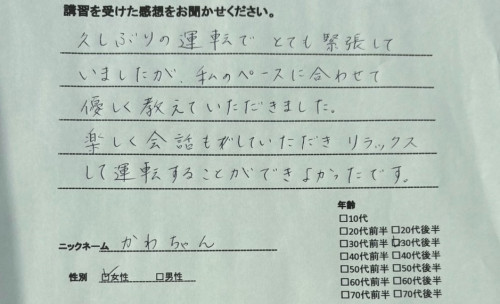 講習を受けた感想をお聞かせください。
久しぶりの運転で とても緊張して
いましたが、私のペースに合わせて
優しく教えていただきました。
楽しく会話もしていただき リラックス
して運転することができよかったです。
ニックネーム かわちゃん
性別 ☑女性 □男性
年齢
□10代
□20代前半 □20代後半
□30代前半 ☑30代後半
□40代前半 □40代後半
□50代前半 □50代後半
□60代前半 □60代後半
□70代前半 □70代後半